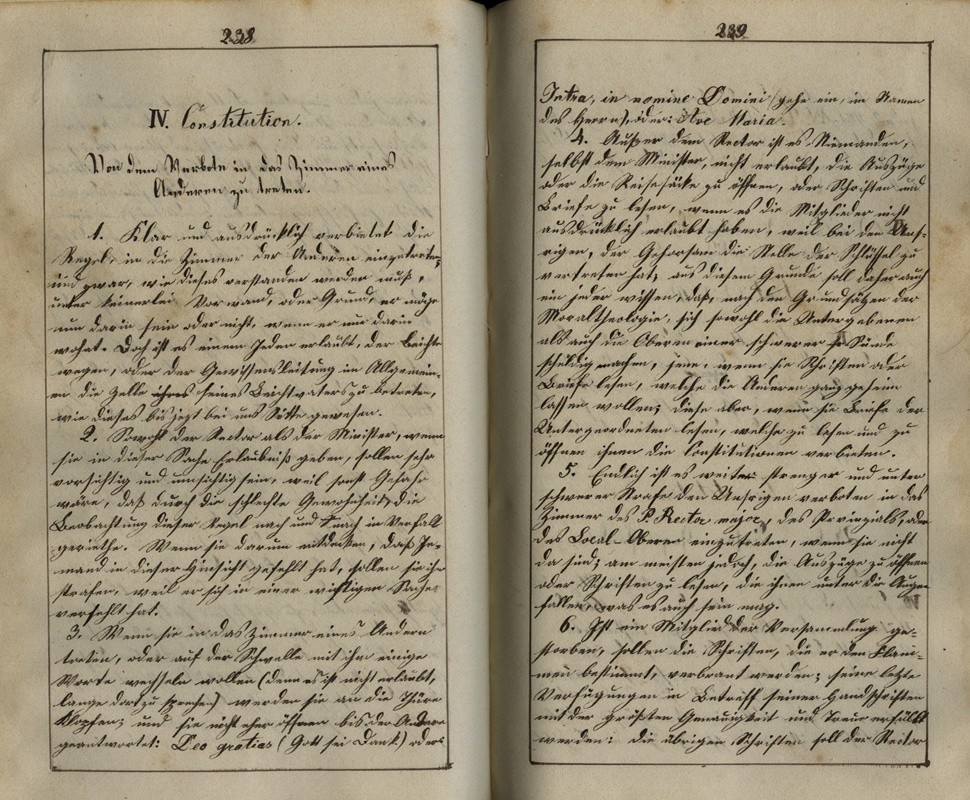 238
IV. Constitution.
Von dem Verbote in das Zimmer eines
Anderen zu treten.
1. Klar und ausdrücklich verbietet die
Regel, in die Zimmer der Anderen einzutreten,
und zwar, wie dieses verstanden werden muß,
unter keinerlei Vorwand, oder Grund, er möge
nun darin sein oder nicht, wenn er nur darin
wohnt. Doch ist es einem Jeden erlaubt, der Beichte
wegen, oder der Gewissensleitung im Allgemein-
en die Zelle seines Beichtvaters zu betreten,
wie dieses bis jezt bei uns Sitte gewesen.
2. Sowohl der Rector als der Minister, wenn
sie in dieser Sache Erlaubniß geben, sollen sehr
vorsichtig und umsichtig sein, weil sonst Gefahr
wäre, daß durch die schlechte Gewohnheit, die
Beobachtung dieser Regel nach und nach in Verfall
geriethe. Wenn sie darum entdecken, daß Je-
mand in dieser Hinsicht gefehlt hat, sollen sie ihn
strafen, weil er sich in einer wichtigen Sache
verfehlt hat.
3. Wenn sie in das Zimmer eines Andern
treten, oder auf der Schwelle mit ihm einige
Worte wechseln wollen (denn es ist nicht erlaubt,
lange dort zu sprechen) werden sie an die Thüre
klopfen; und sie nicht eher öffnen bis der Andere
geantwortet: Deo gratias (Gott sei Dank) oder
239
Intra, in nomine Domini (gehe ein, im Namen
des Herrn) oder: Ave Maria.
4. Außer dem Rector ist es Niemanden,
selbst dem Minister, nicht erlaubt, die Auszüge
oder die Reisesäcke zu öffnen, oder Schriften und
Briefe zu lesen, wenn es die Mitglieder nicht
ausdrücklich erlaubt haben, weil bei den Uns-
rigen, der Gehorsam die Stelle der Schlüssel zu
vertreten hat; aus diesem Grunde soll daher auch
ein jeder wissen, daß, nach den Grundsätzen der
Moraltheologie, sich sowohl die Untergebenen
als auch die Oberen einer schwerer Sünde
schuldig machen, jene, wenn sie Schriften oder
Briefe lesen, welche die Anderen ganz geheim
lassen wollen; diese aber, wenn sie Briefe der
Untergeordneten lesen, welche zu lesen und zu
öffnen ihnen die Constitutionen verbieten.
5. Endlich ist es weiter strenger und unter
schwerer Strafe den Unsrigen verboten in das
Zimmer des P. Rector major, des Provinzials, oder
des Local-Oberen einzutreten, wenn sie nicht
da sind; am meisten jedoch, die Auszüge zu öffnen
oder Schriften zu lesen, die ihnen unter die Augen
fallen, was es auch sein mag.
6. Ist ein Mitglied der Versammlung ge-
storben, sollen die Schriften, die er den Flam-
men bestimmt, verbrant werden; seine letzte
Verfügungen in Betreff seiner Handschriften
mit der größten Genauigkeit und Treue erfüllt
werden: die übrigen Schriften soll der Rector